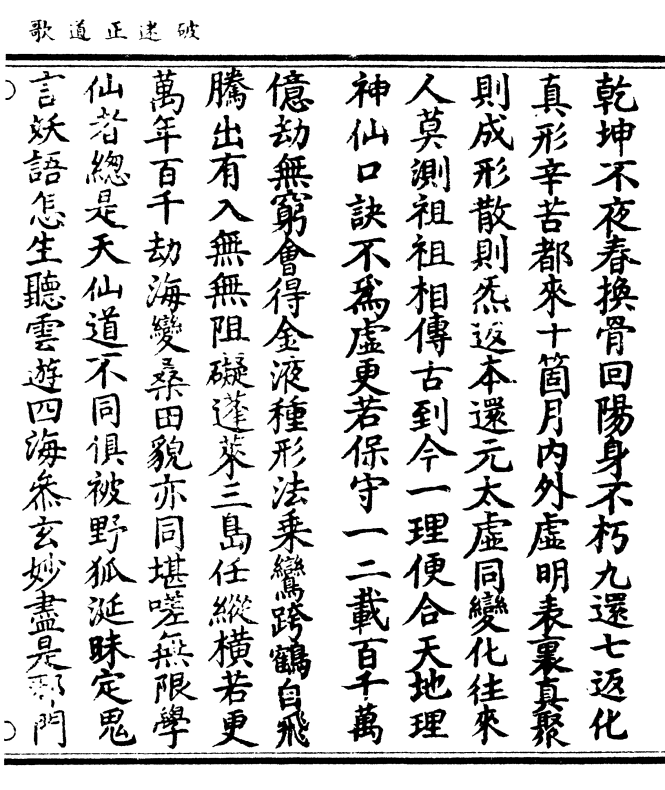 破迷正道歌
乾坤不夜春換骨回陽身不朽九還七返化
真形辛苦都來十箇月內外虛明表裏真聚
則成形散則炁返本還元太虛同變化往來
人莫測祖祖相傳古到今一理便合天地理
神仙口訣不爲虛更若保守一二載百千萬
億劫無窮會得金液種形法乗鸞跨鶴白飛
騰出有入無無阻礙蓬萊三島任縱横若更
萬年百千劫海變桑田貌亦同堪嗟無限學
仙者總是天仙道不同俱被野狐涎昧定鬼
言妖語怎生聽雲遊四海叅玄妙盡是邪門